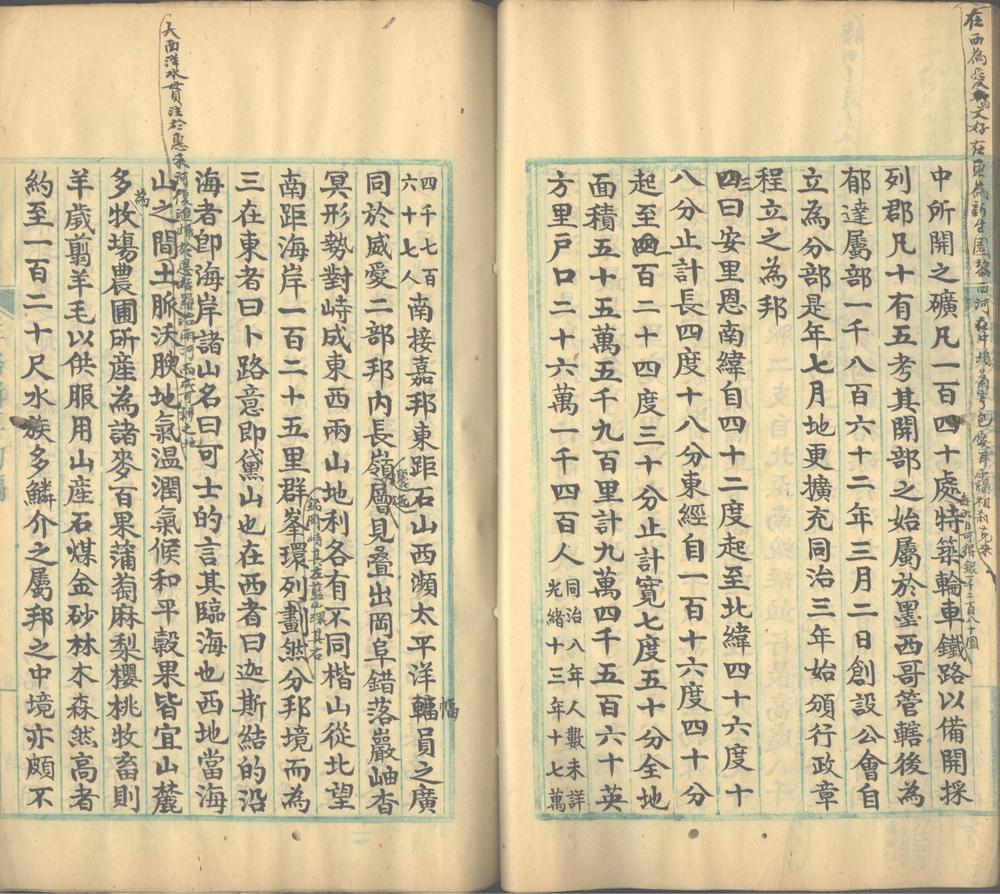 在西為愛 文好在東為新金園黎西河在中境為
每 可得銀一千二百八十圓
中所開之礦凡一百四十處特築輪車鐵路以備開採
列郡凡十有五考其開部之始屬於墨西哥管轄後為
郁達屬部一千八百六十二年三月二日創設公會自
立為分部是年七月地更擴充同治三年始頒行政章
程立之為邦
四曰安里恩南緯自四十二度起至北緯四十六度十
八分止計長四度十八分東經自一百十六度四十分
起至一百二十四度三十分止計寬七度五十分全地
面積五十五萬五千九百里計九萬四千五百六十英
方里戶口二十六萬一千四百人同治八年人數未詳
光緒十三年十七萬
四千七百
六十七人南接嘉邦東距石山西瀕太平洋幅員之廣
同於威愛二部邦內長嶺層見疊出岡阜錯落巖岫杳
邐迤
冥形勢對峙成東西兩山地利各有不同楷山從北望
南距海岸一百二十五里群峯環列劃然分邦境而為
鋸岡峙其左 其右
三在東者曰卜路意即黛山也在西者曰迦斯結的沿
海者卽海岸諸山名曰可士的言其臨海也西地當海
大西洋水貫注於惠來河後 於惠 兩河而成可耕之地
山之間土脈沃腴地氣溫潤氣候和平穀果皆宜山麓
為
多牧場農圃所產為諸麥百果蒲萄麻梨櫻桃牧畜則
羊歲翦羊毛以供服用山產石煤金砂林木森然高者
約至一百二十尺水族多鱗介之屬邦之中境亦頗不